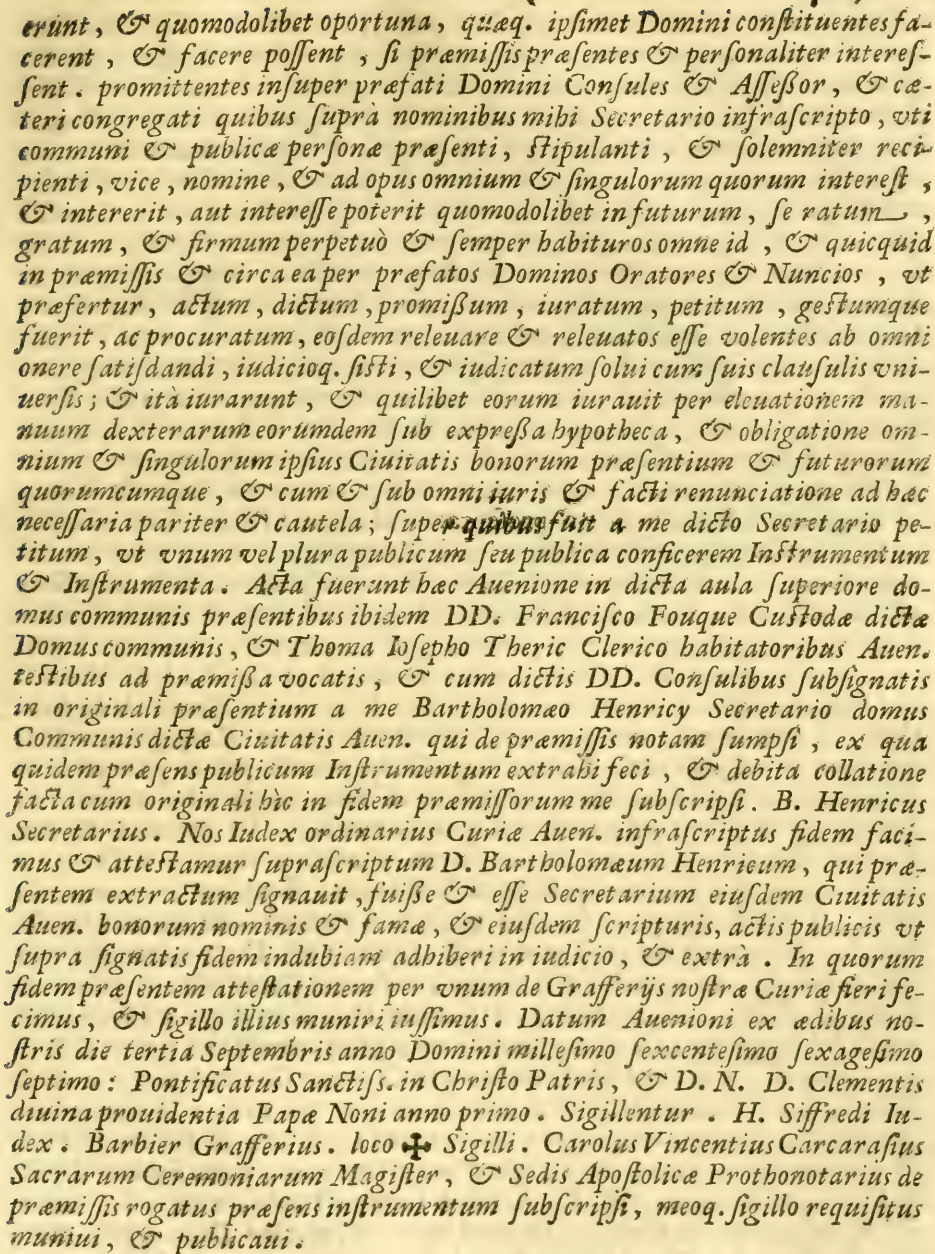 erunt, & quomodolibet oportuna, quæq. ipsimet Domini constituentes fa-
cerent, & facere possent, si præmissis præsentes & personaliter interes-
sent. promittentes insuper præfati Domini Consules & Assessor, & cæ-
teri congregati quibus suprà nominibus mihi Secretario infrascripto, vti
communi & publicæ personæ præsenti, stipulanti, & solemniter reci-
pienti, vice, nomine, & ad opus omnium & singulorum quorum interest,
& intererit, aut interesse poterit quomodolibet in futurum, se ratum,
gratum, & firmum perpetuò & semper habituros omne id, & quicquid
in præmissis & circa ea per præfatos Dominos Oratores & Nuncios, vt
præfertur, actum, dictum, promissum, iuratum, petitum, gestumque
fuerit, ac procuratum, eosdem releuare & releuatos esse volentes ab omni
onere satisdandi, iudicioq. sisti, & iudicatum solui cum suis clausulis vni-
uersis; & ità iurarunt, & quilibet eorum iurauit per eleuationem ma-
nuum dexterarum eorumdem sub expressa hypotheca, & obligatione om-
nium & singulorum ipsius Ciuitatis bonorum præsentium & futurorum
quorumcumque, & cum & sub omni iuris & facti renunciatione ad hæc
necessaria pariter & cautela; super quibus fuit a me dicto Secretario pe-
titum, vt vnum vel plura publicum seu publica conficerem Instrumentum
& Instrumenta. Acta fuerunt hæc Auenione in dicta aula superiore do-
mus communis præsentibus ibidem DD. Francisco Fouque Custodæ dictæ
Domus communis, & Thoma Iosepho Theric Clerico habitatoribus Auen.
testibus ad præmissa vocatis, & cum dictis DD. Consulibus subsignatis
in originali præsentium a me Bartholomæo Henricy Secretario domus
Communis dictæ Ciuitatis Auen. qui de præmissis notam sumpsi, ex qua
quidem præsens publicum Instrumentum extrahi feci, & debita collatione
facta cum originali hìc in fidem præmissorum me subscripsi. B. Henricus
Secretarius. Nos Iudex ordinarius Curiæ Auen. infrascriptus fidem faci-
mus & attestamur suprascriptum D. Bartholomæum Henricum, qui præ-
sentem extractum signauit, fuisse & esse Secretarium eiusdem Ciuitatis
Auen. bonorum nominis & famæ, & eiusdem scripturis, actis publicis vt
supra signatis fidem indubiam adhiberi in iudicio, & extrà. In quorum
fidem præsentem attestationem per vnum de Grafferijs nostræ Curiæ fieri fe-
cimus, & sigillo illius muniri iussimus. Datum Auenioni ex ædibus no-
stris die tertia Septembris anno Domini millesimo sexcentesimo sexagesimo
septimo: Pontificatus Sanctiss. in Christo Patris, & D. N. D. Clementis
diuina prouidentia Papæ Noni anno primo. Sigillentur. H. Siffredi Iu-
dex. Barbier Grafferius. loco ✠ Sigilli. Carolus Vincentius Carcarasius
Sacrarum Ceremoniarum Magister, & Sedis Apostolicæ Prothonotarius de
præmissis rogatus præsens instrumentum subscripsi, meoq. sigillo requisitus
muniui, & publicaui.